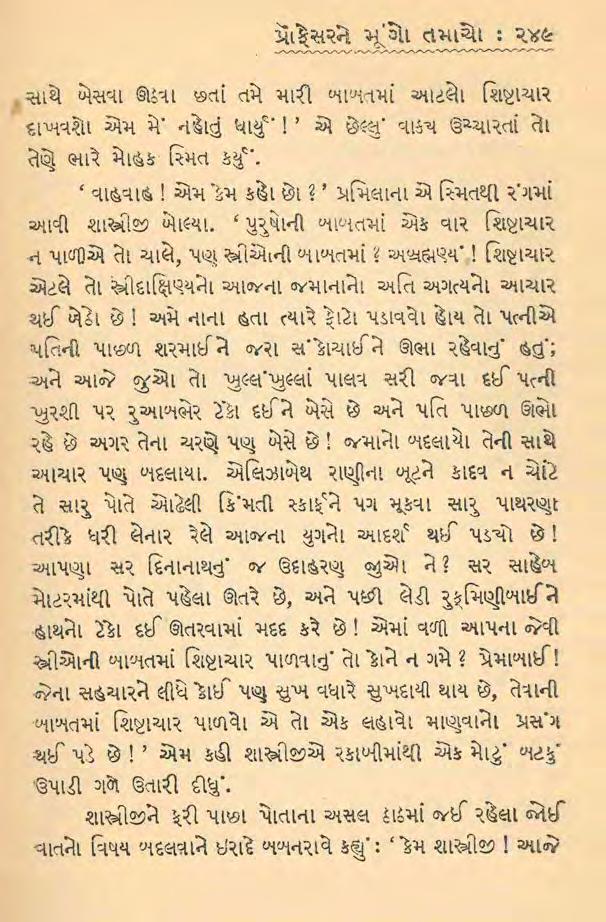 પ્રૉફેસરને મૂંગો તમાચો : ૨૪૯
સાથે બેસવા ઊઠવા છતાં તમે મારી બાબતમાં આટલો શિષ્ટાચાર
દાખવશો એમ મેં નહોતું ધાર્યું !’ એ છેલ્લું વાક્ય ઉચ્ચારતાં તો
તેણે ભારે મોહક સ્મિત કર્યું.
‘ વાહવાહ ! એમ કેમ કહો છો ?’ પ્રમિલાના એ સ્મિતથી રંગમાં
આવી શાસ્ત્રીજી બોલ્યા. ‘ પુરુષોની બાબતમાં એક વાર શિષ્ટાચાર
ન પાળીએ તો ચાલે, પણ સ્ત્રીઓની બાબતમાં ? અબ્રહ્મણ્યં ! શિષ્ટાચાર
એટલે તો સ્ત્રીદાક્ષિણ્યનો આજના જમાનાનો અતિ અગત્યનો આચાર
થઈ બેઠો છે ! અમે નાના હતા ત્યારે ફોટો પડાવવો હોય તો પત્નીએ
પતિની પાછળ શરમાઈને જરા સંકોચાઈને ઊભા રહેવાનું હતું;
અને આજે જુઓ તો ખુલ્લંખુલ્લાં પાલવ સરી જવા દઈ પત્ની
ખુરશી પર રુઆબભેર ટેકો દઈને બેસે છે અને પતિ પાછળ ઊભો
રહે છે અગર તેના ચરણે પણ બેસે છે ! જમાનો બદલાયો તેની સાથે
આચાર પણ બદલાયા. એલિઝાબેથ રાણીના બૂટને કાદવ ન ચોંટે
તે સારુ પોતે ઓઢેલી કિંમતી સ્કાર્ફને પગ મૂકવા સારુ પાથરણા
તરીકે ધરી લેનાર રેલે આજના યુગનો આદર્શ થઈ પડ્યો છે !
આપણા સર દિનાનાથનું જ ઉદાહરણ જુઓ ને ? સર સાહેબ
મોટરમાંથી પોતે પહેલા ઊતરે છે, અને પછી લેડી રુક્મિણીબાઈને
હાથનો ટેકો દઈ ઊતરવામાં મદદ કરે છે ! એમાં વળી આપના જેવી
સ્ત્રીઓની બાબતમાં શિષ્ટાચાર પાળવાનું તો કોને ન ગમે ? પ્રેમાબાઈ !
જેના સહચારને લીધે કોઈ પણ સુખ વધારે સુખદાયી થાય છે, તેવાની
બાબતમાં શિષ્ટાચાર પાળવો એ તો એક લહાવો માણવાનો પ્રસંગ
થઈ પડે છે !’ એમ કહી શાસ્ત્રીજીએ રકાબીમાંથી એક મોટું બટકું
ઉપાડી ગળે ઉતારી દીધું.
શાસ્ત્રીજીને ફરી પાછા પોતાના અસલ ઠાઠમાં જઈ રહેલા જોઈ
વાતનો વિષય બદલવાને ઇરાદે બબનરાવે કહ્યું : ‘ કેમ શાસ્ત્રીજી ! આજે